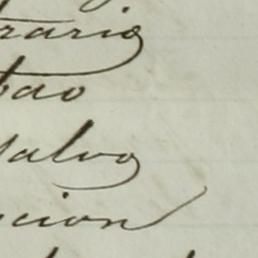 rario
bao
salvo
cion